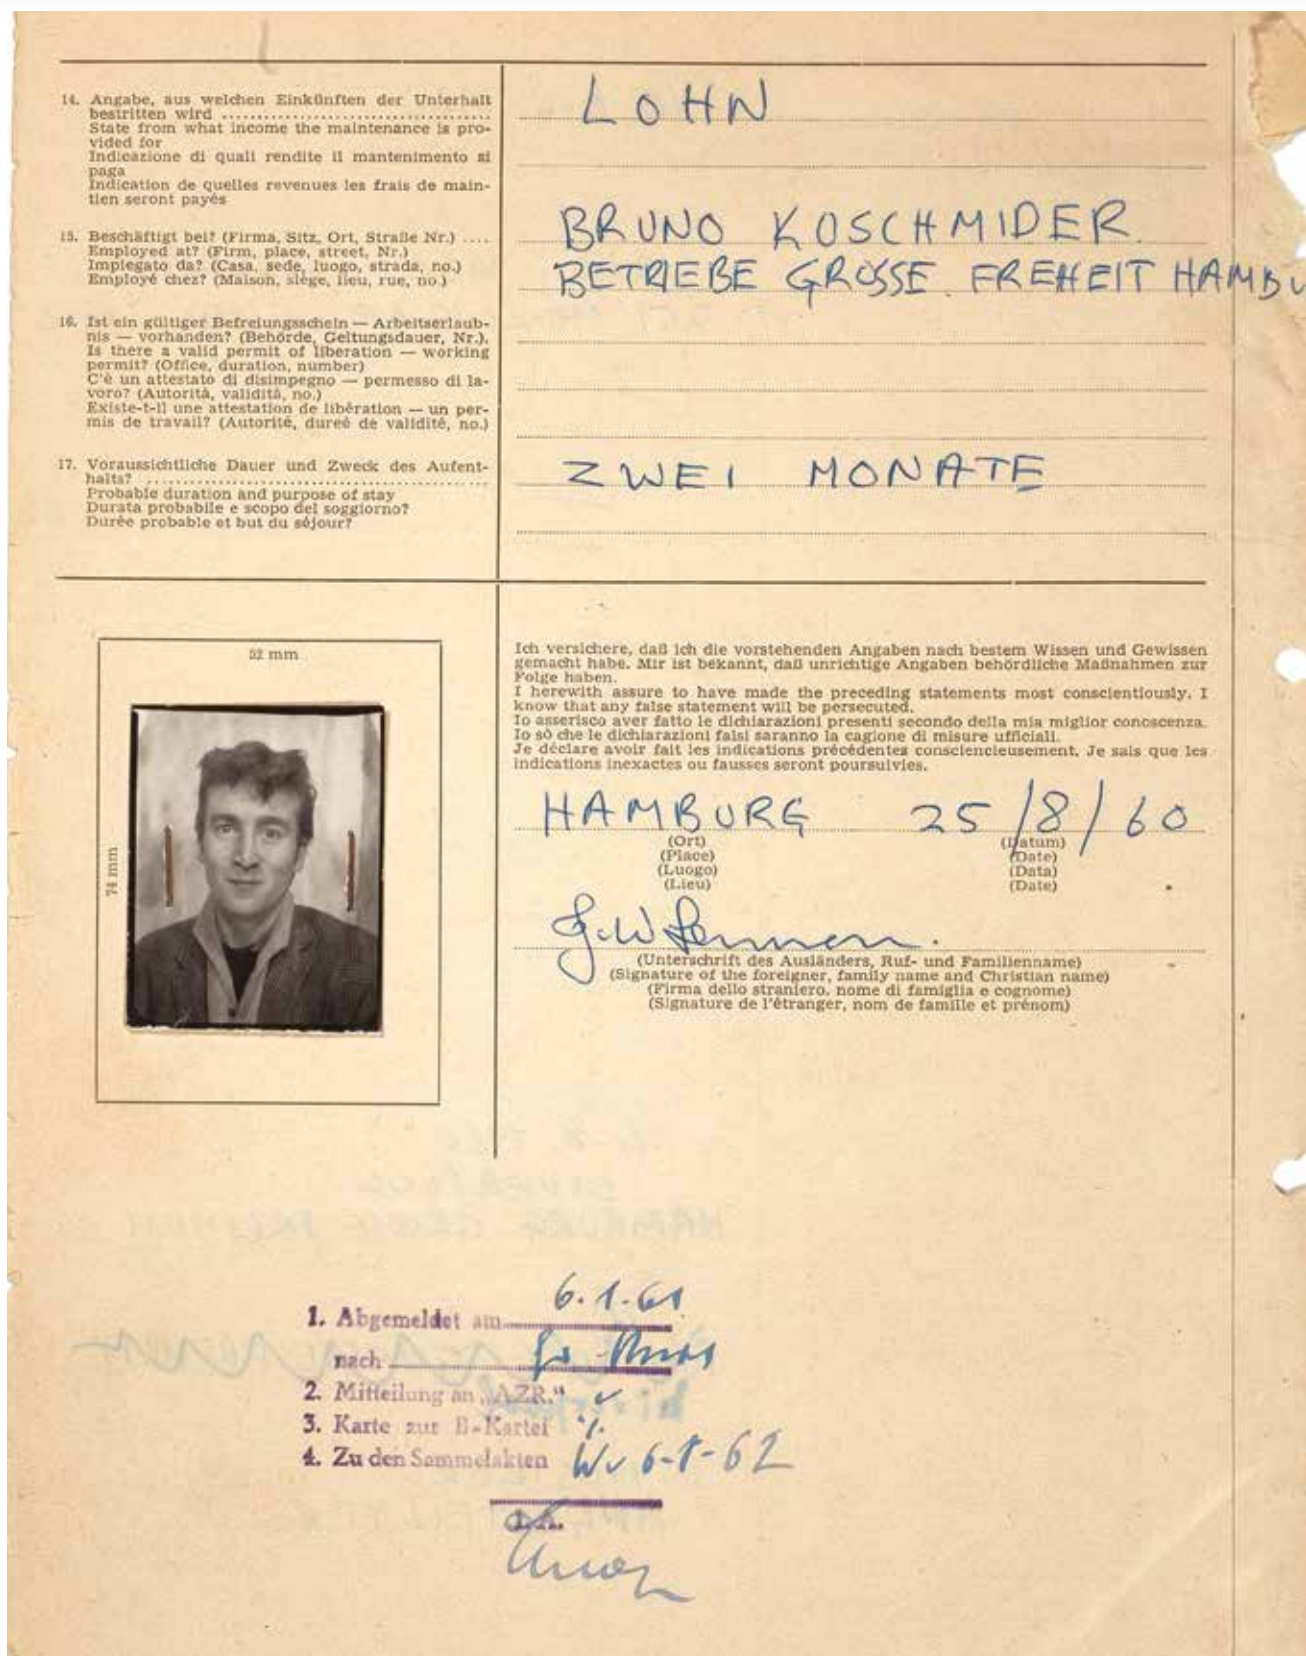 14. Angabe, aus welchen Einkünften der Unterhalt
bestritten wird ....................................
State from what income the maintenance is pro-
vided for
Indicazione di quali rendite il mantenimento si
paga
Indication de quelles revenues les frais de main-
tien seront payés
LOHN
15. Beschäftigt bei? (Firma, Sitz, Ort, Straße Nr.) ....
Employed at? (Firm, place, street, Nr.)
Impiegato da? (Casa, sede, luogo, strada, no.)
Employé chez? (Maison, siège, lieu, rue, no.)
BRUNO KOSCHMIDER.
BETRIEBE GROSSE FREIHEIT HAMBU
16. Ist ein gültiger Befreiungsschein — Arbeitserlaub-
nis — vorhanden? (Behörde, Geltungsdauer, Nr.).
Is there a valid permit of liberation — working
permit? (Office, duration, number)
C'è un attestato di disimpegno — permesso di la-
voro? (Autorità, validità, no.)
Existe-t-il une attestation de libération — un per-
mis de travail? (Autorité, dureé de validité, no.)
17. Voraussichtliche Dauer und Zweck des Aufent-
halts? ..........................................
Probable duration and purpose of stay
Durata probabile e scopo del soggiorno?
Durée probable et but du séjour?
ZWEI MONATE
52 mm
74 mm
Ich versichere, daß ich die vorstehenden Angaben nach bestem Wissen und Gewissen
gemacht habe. Mir ist bekannt, daß unrichtige Angaben behördliche Maßnahmen zur
Folge haben.
I herewith assure to have made the preceding statements most conscientiously. I
know that any false statement will be persecuted.
Io asserisco aver fatto le dichiarazioni presenti secondo della mia miglior conoscenza.
Io sò che le dichiarazioni falsi saranno la cagione di misure ufficiali.
Je déclare avoir fait les indications précédentes consciencieusement. Je sais que les
indications inexactes ou fausses seront poursuivies.
HAMBURG 25/8/60
(Ort) (Datum)
(Place) (Date)
(Luogo) (Data)
(Lieu) (Date)
J. W Lennon.
(Unterschrift des Ausländers, Ruf- und Familienname)
(Signature of the foreigner, family name and Christian name)
(Firma dello straniero, nome di famiglia e cognome)
(Signature de l'étranger, nom de famille et prénom)
1. Abgemeldet am 6.1.61
nach
2. Mitteilung an „AZR."
3. Karte zur B-Kartei %
4. Zu den Sammelakten